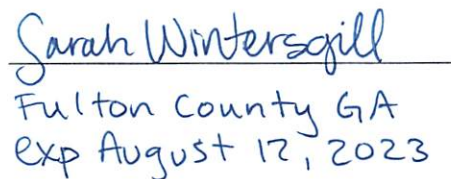 Sarah Wintersgill
Fulton County GA
exp August 12, 2023